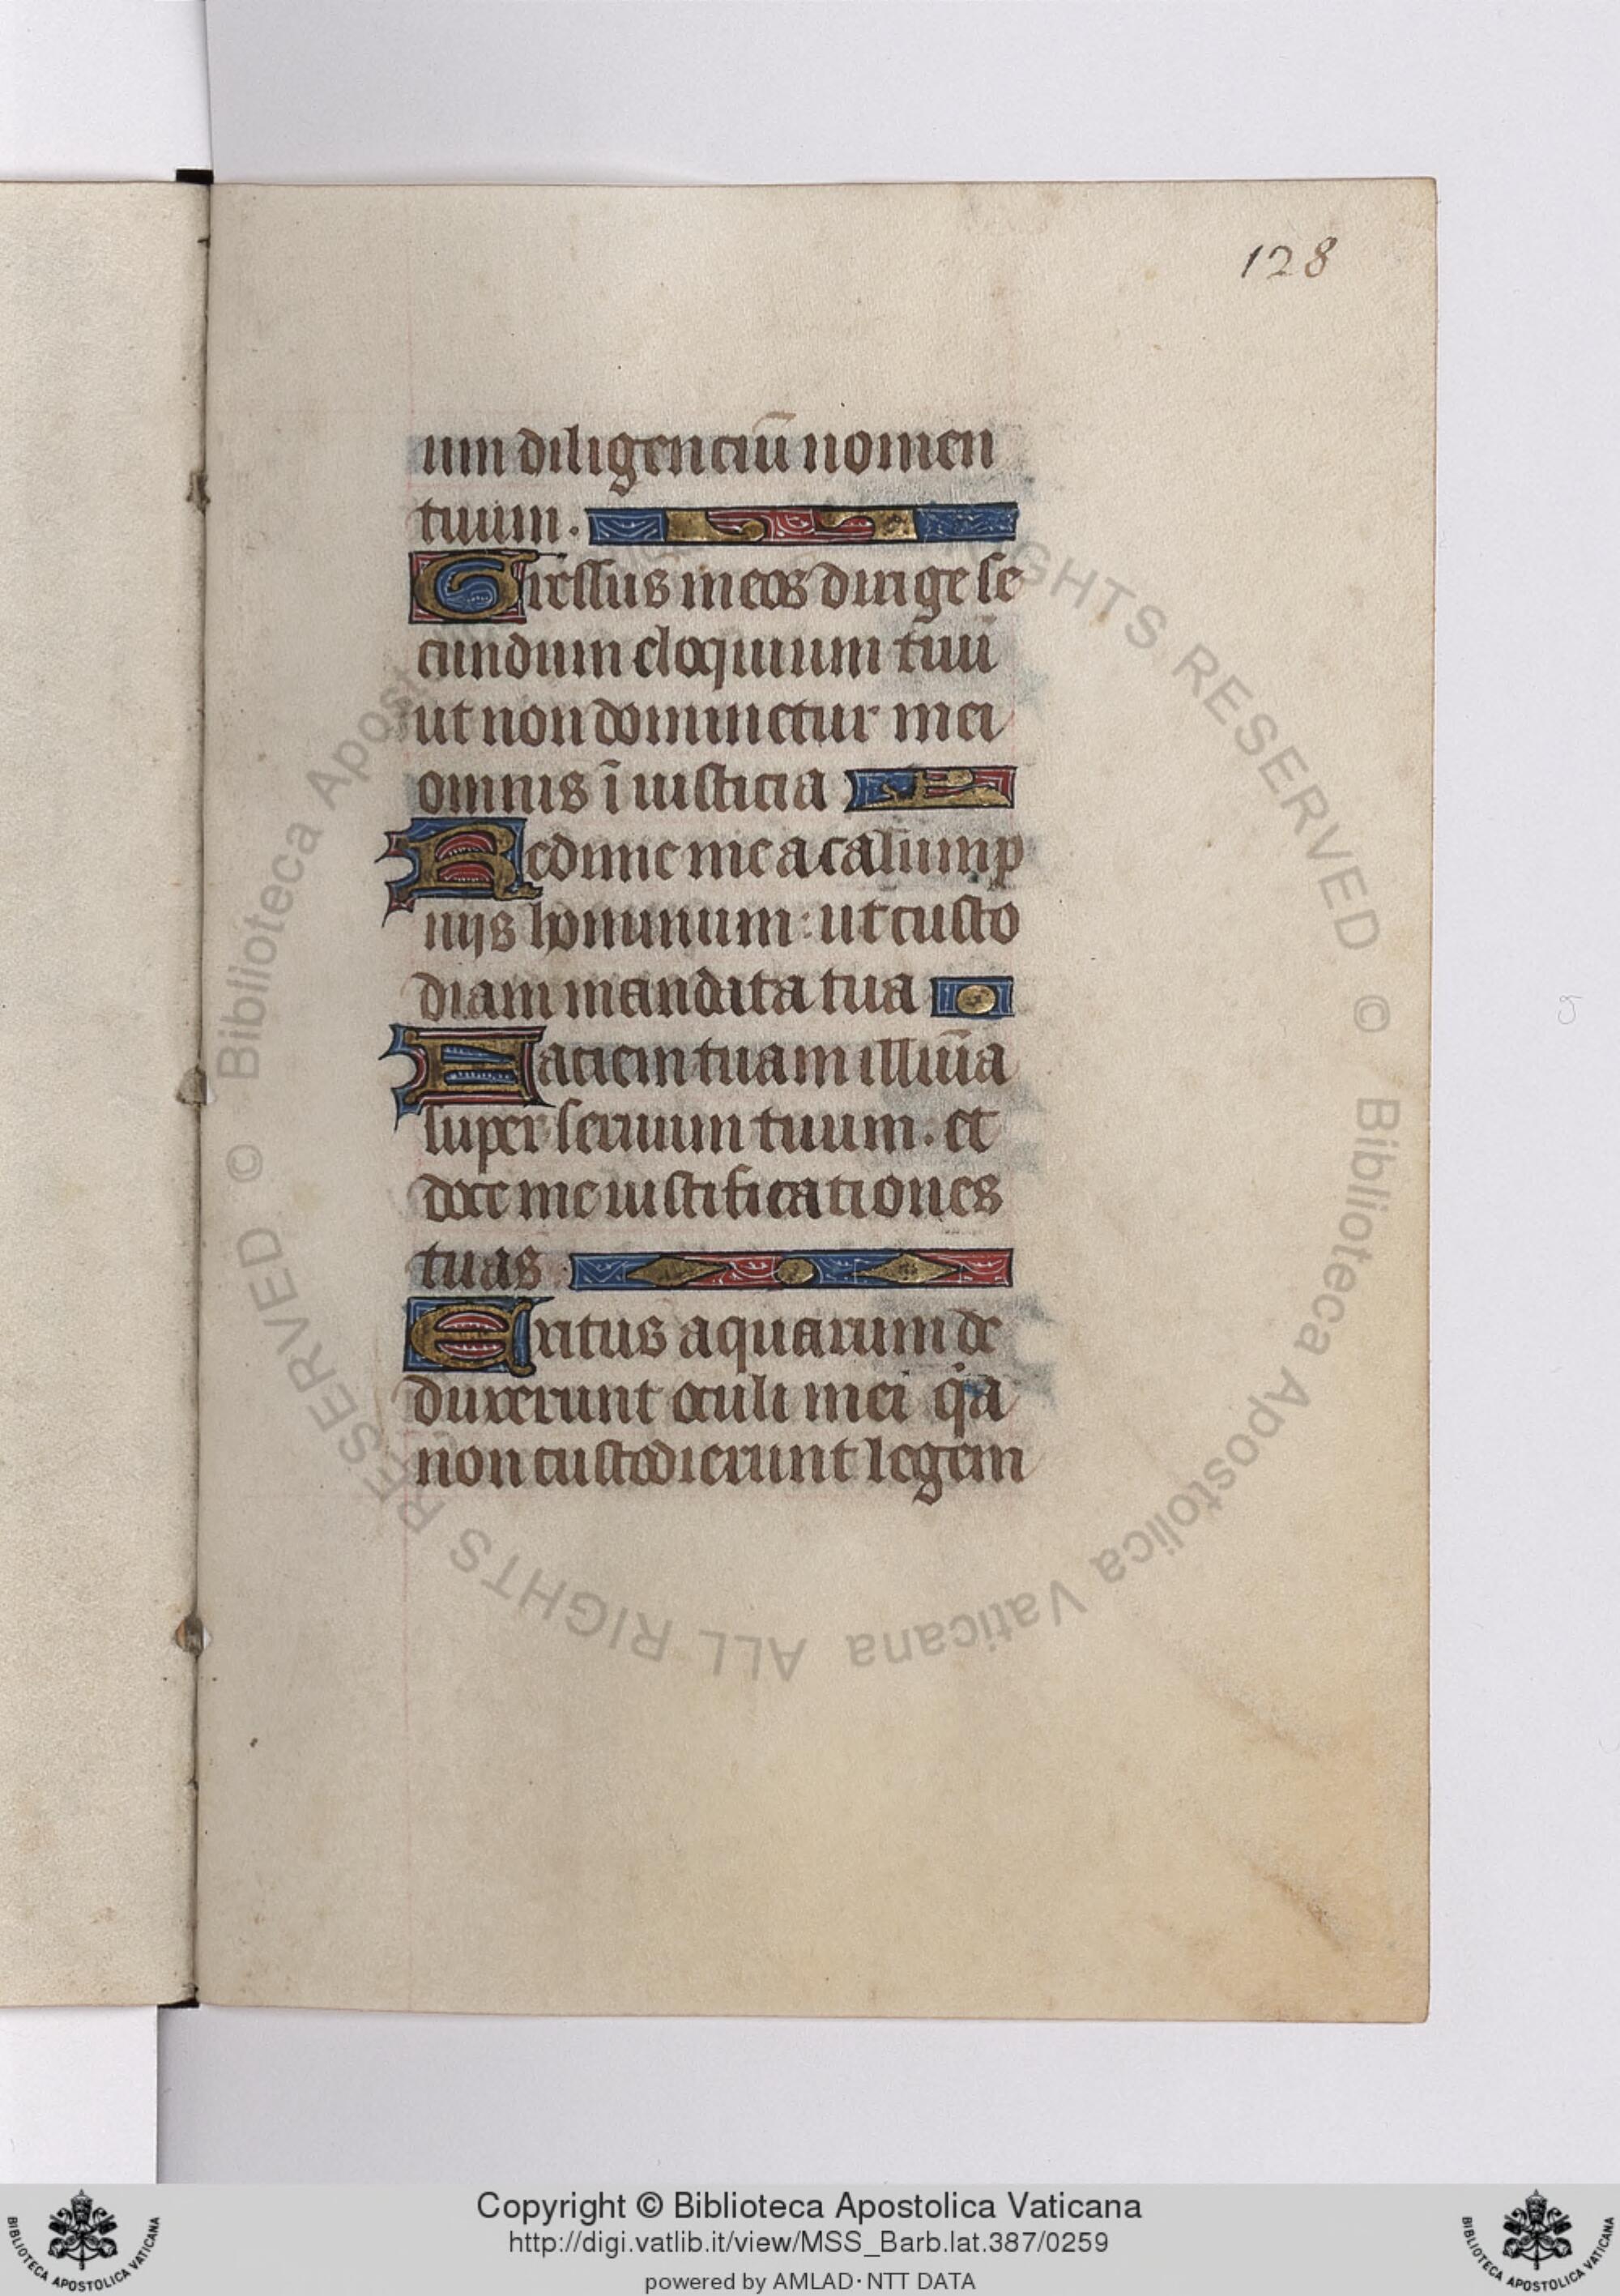 128
um diligenciū nomen
tuum.
Gressus meos dirige se
cundum eloquium tuū
ut non dominetur mei
omnis īiusticia
Redime me a calump
niis hominum: ut custo
diam mandata tua
Faciem tuam illuīa
super seruum tuum. et
doce me iustificationes
tuas
Exitus aquarum de
duxerunt oculi mei qͥa
non custodierunt legem
© Biblioteca Apostolica Vaticana ALL RIGHTS RESERVED
Copyright © Biblioteca Apostolica Vaticana
http://digi.vatlib.it/view/MSS_Barb.lat.387/0259
powered by AMLAD·NTT DATA
BIBLIOTECA APOSTOLICA VATICANA
BIBLIOTECA APOSTOLICA VATICANA